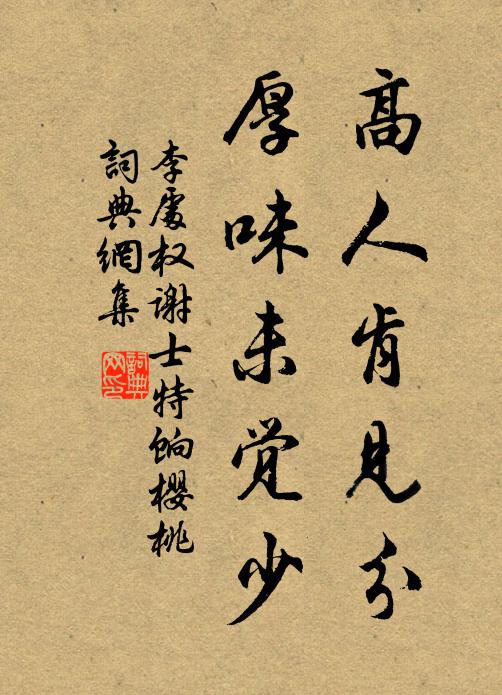 高人肯見分
厚味未觉少
李處权谢士特餉櫻桃
詞典網集
詞典网印